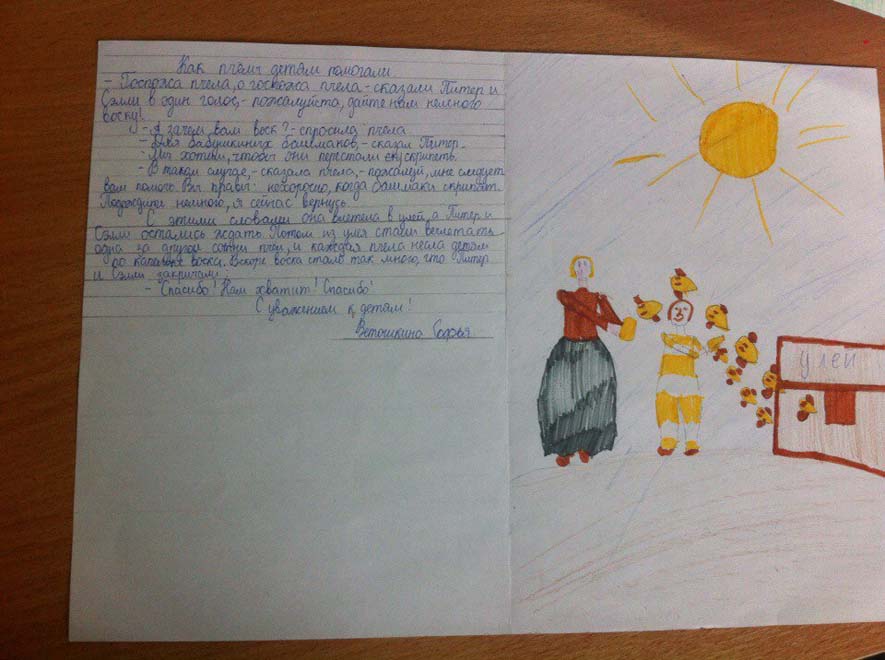 Как пчёлы детям помогали.
- Госпожа пчела, о госпожа пчела - сказали Питер и
Сэлли в один голос, - пожалуйста, дайте нам немного
воску!
- А зачем вам воск? - спросила пчела
- Для бабушкиных башмаков, - сказал Питер. -
Мы хотим, чтобы они перестали скрипеть.
- В таком случае, - сказала пчела, - пожалуй, мне следует
вам помочь. Вы правы: нехорошо, когда башмаки скрипят.
Подождите немного, я сейчас вернусь.
С этими словами она влетела в улей, а Питер и
Сэлли остались ждать. Потом из улея стали вылетать
одна за другой сотни пчёл, и каждая пчела несла детям
по капельке воска. Вскоре воска стало так много, что Питер
и Сэлли закричали:
- Спасибо! Нам хватит! Спасибо!
С уважением к детям!
Ветошкина Софья
улей